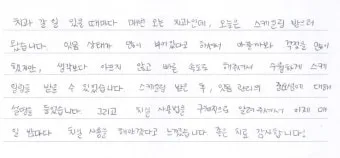 치과 갈 일 있을 때마다 매번 오는 치과인데, 오늘은 스케일링 받으러
왔습니다. 잇몸 상태가 많이 안좋다고 하셔서 아플까봐 걱정을 많이
했지만, 생각보다 아프지 않고 빠른 속도로 해주셔서 수월하게 스케
일링을 받을 수 있었습니다. 스케일링 받은 후, 잇몸 관리의 중요성에 대해
설명을 들었습니다. 그리고 치실 사용법을 구체적으로 알려주셔서 이제 매
일 밤마다 치실 사용을 해야겠다고 느꼈습니다 좋은 치료 감사합니다!